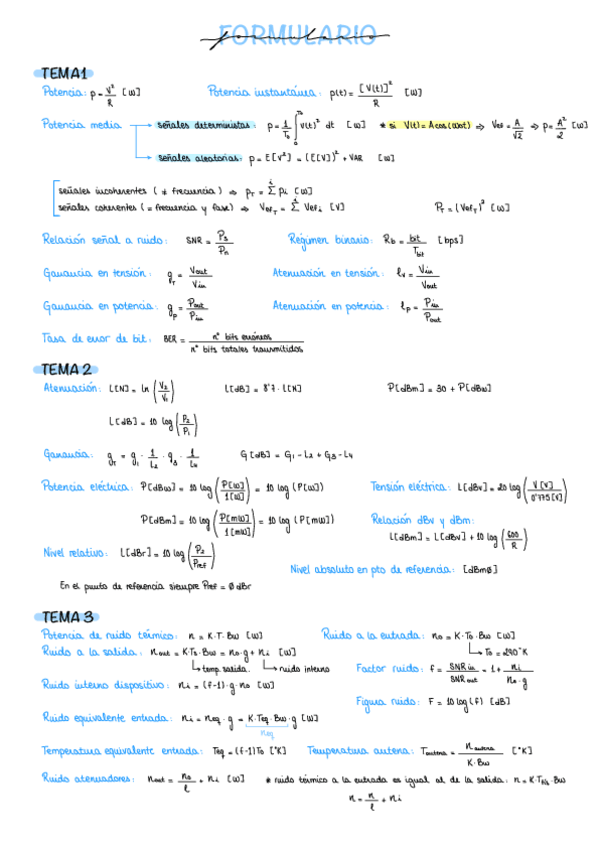 FORMULARIO
TEMA 1
Potencia: p = V²/R [W] Potencia instantánea: p(t) = [V(t)]²/R [W]
Potencia media → señales deterministas: p = 1/T₀ ∫₀^T₀ v(t)² dt [W] * si V(t) = A cos(ω₀t) ⇒ Vef = A/√2 ⇒ p = A²/2 [W]
→ señales aleatorias: p = E[v²] = (E[V])² + VAR [W]
señales incoherentes (≠ frecuencia) ⇒ p_T = Σ pi [W]
señales coherentes (= frecuencia y fase) ⇒ Vef_T = Σ Vef i [V] P_T = (Vef_T)² [W]
Relación señal a ruido: SNR = Ps/Pn Régimen binario: R_b = bit/T_bit [bps]
Ganancia en tensión: g_VT = Vout/Vin Atenuación en tensión: l_v = Vin/Vout
Ganancia en potencia: g_p = Pout/Pin Atenuación en potencia: l_p = Pin/Pout
Tasa de error de bit: BER = nº bits erróneos / nº bits totales transmitidos
TEMA 2
Atenuación: L[N] = ln (V₂/V₁) L[dB] = 8'7 · L[N] P[dBm] = 30 + P[dBW]
L[dB] = 10 log (P₂/P₁)
Ganancia: g_T = g₁ · 1/L₂ · g₃ · 1/L₄ G[dB] = G₁ - L₂ + G₃ - L₄
Potencia eléctrica: P[dBW] = 10 log (P[W]/1[W]) = 10 log (P[W]) Tensión eléctrica: L[dBv] = 20 log (V[V]/0'775[V])
P[dBm] = 10 log (P[mW]/1[mW]) = 10 log (P[mW]) Relación dBv y dBm:
L[dBm] = L[dBv] + 10 log (600/R)
Nivel relativo: L[dBr] = 10 log (P₂/Pref)
Nivel absoluto en pto de referencia: [dBmø]
En el punto de referencia siempre Pref = ø dBr
TEMA 3
Potencia de ruido térmico: n = K·T·Bw [W] Ruido a la entrada: n₀ = K·T₀·Bw [W]
→ T₀ = 290°K
Ruido a la salida: nout = K·Ts·Bw = n₀·g + ni [W]
→ temp. salida. → ruido interno
Factor ruido: f = SNR in/SNR out = 1 + ni/(n₀·g)
Ruido interno dispositivo: ni = (f-1)·g·n₀ [W]
Figura ruido: F = 10 log (f) [dB]
Ruido equivalente entrada: ni = neq · g = K·Teq·Bw·g [W]
neq
Temperatura equivalente entrada: Teq = (f-1)T₀ [°K] Temperatura antena: Tantena = nantena/(K·Bw) [°K]
Ruido atenuadores: nout = n₀/l + ni [W] * ruido térmico a la entrada es igual al de la salida: n = K·T·Bw
n = n/l + ni